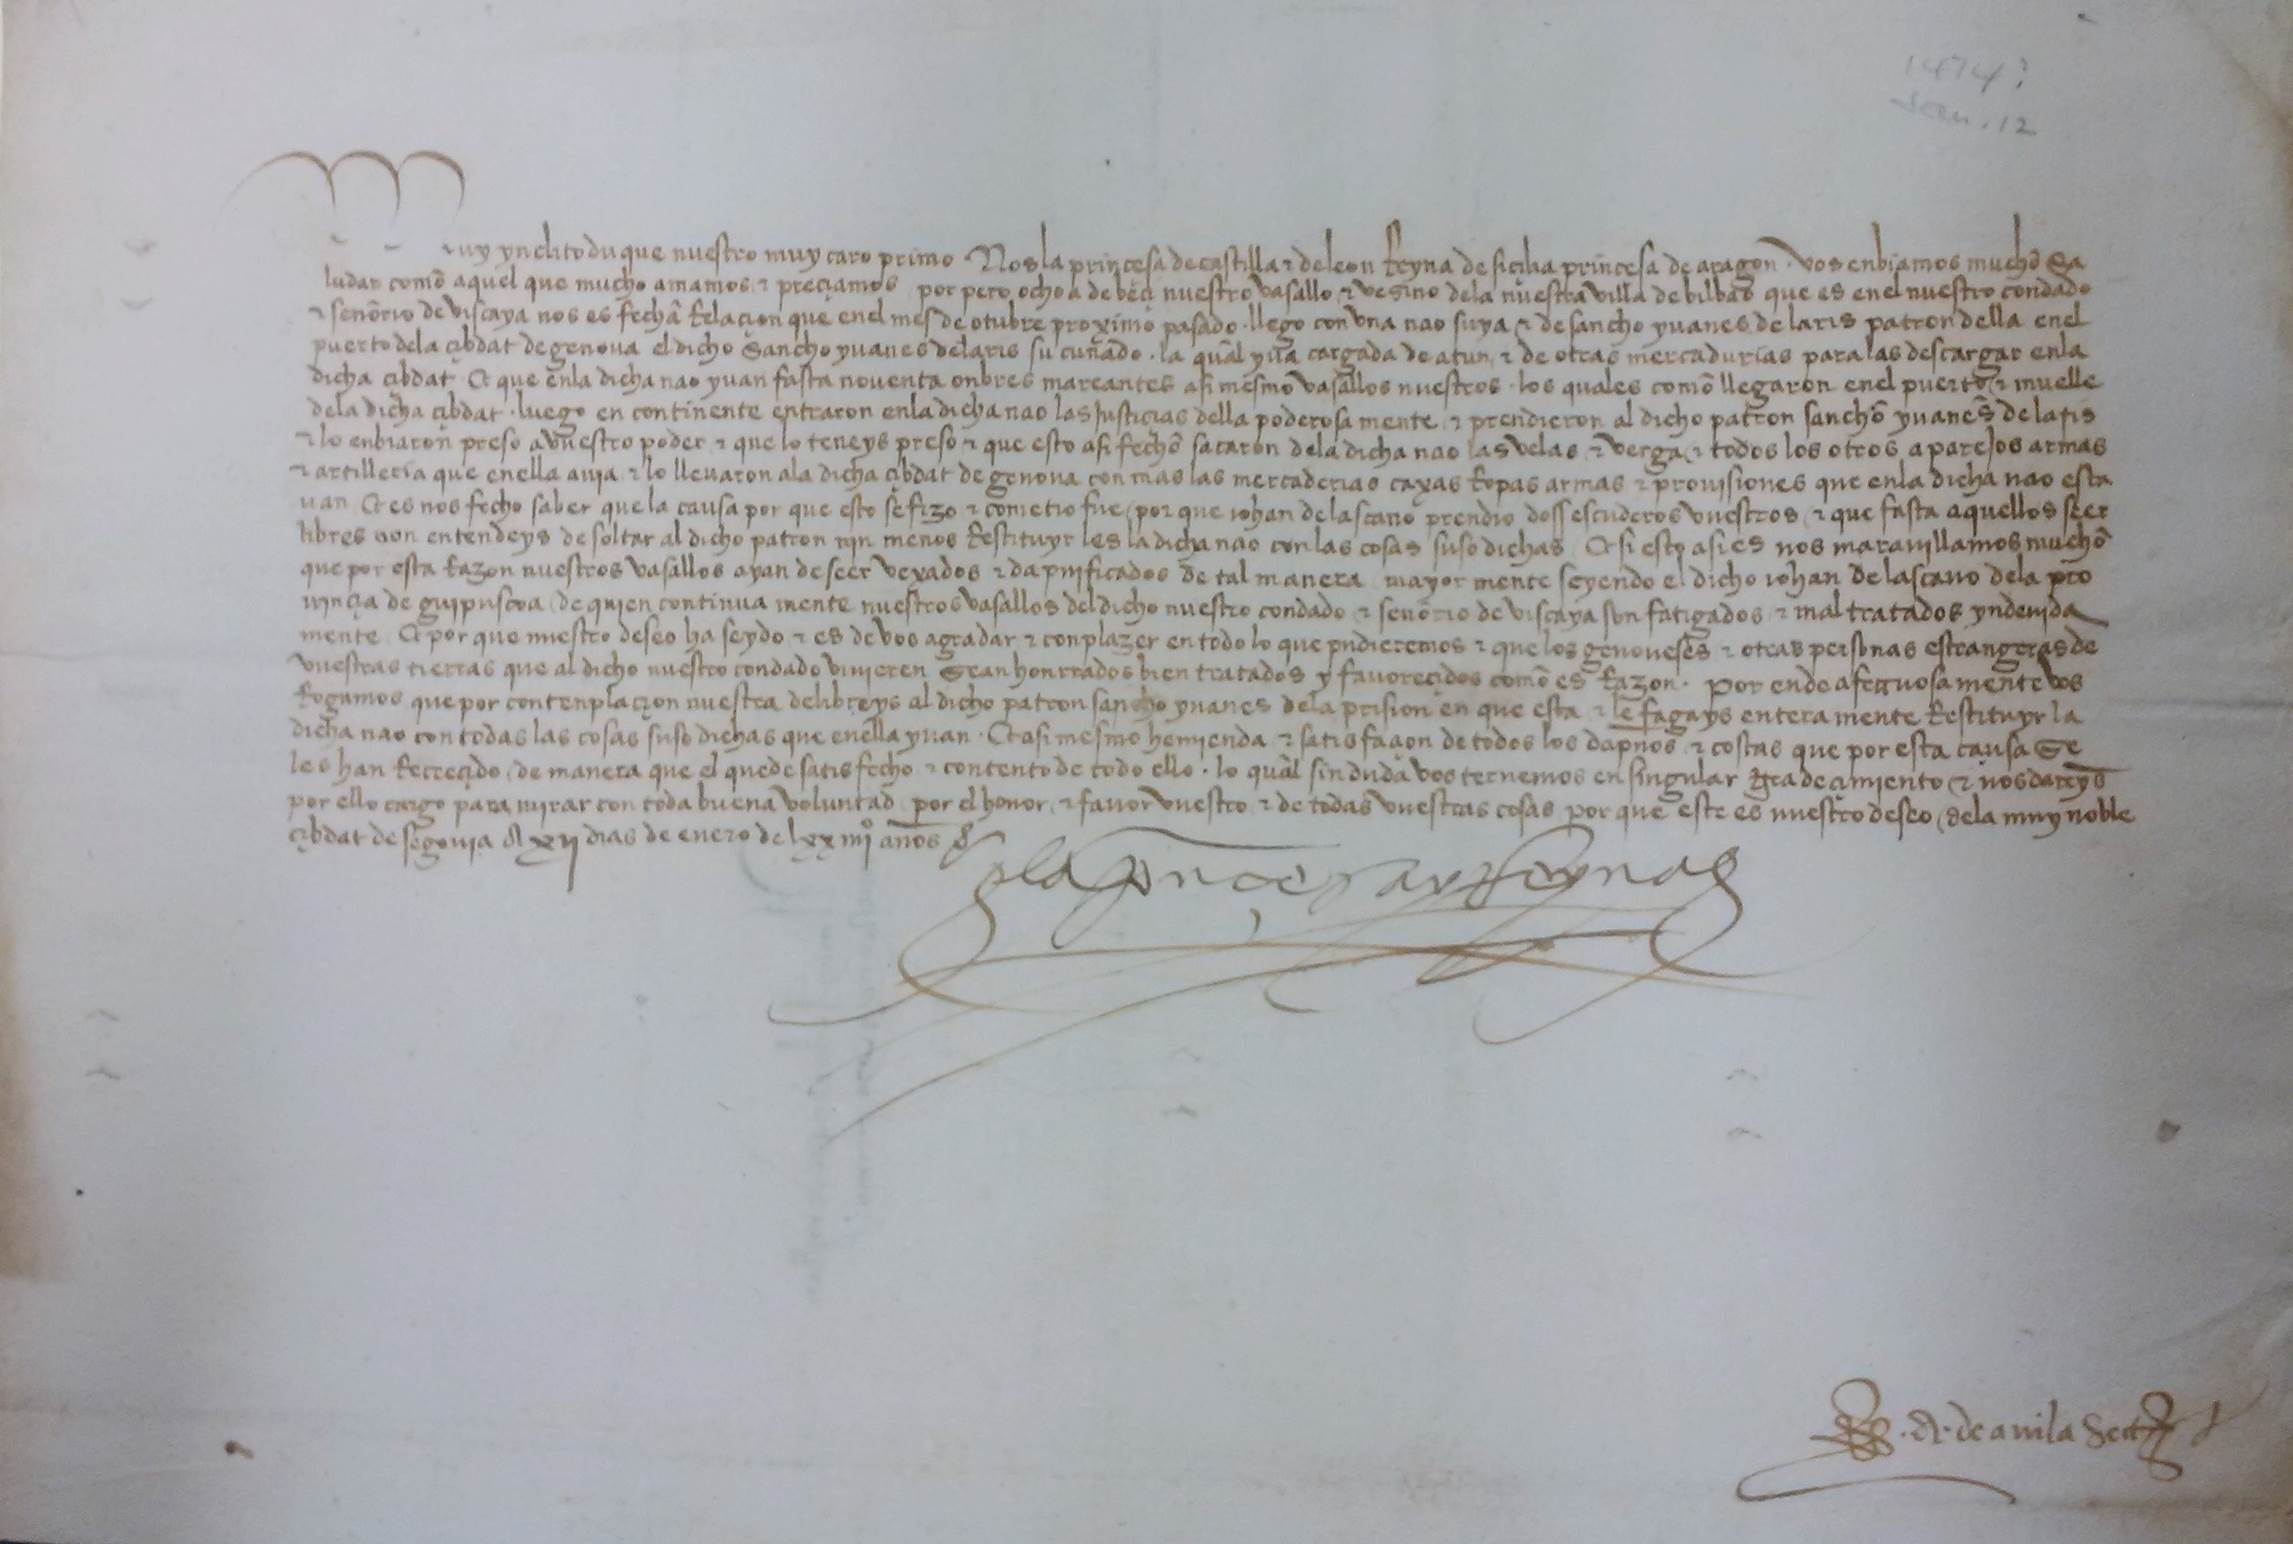 1474?
Jan. 12
Muy ynclito duque nuestro muy caro primo. Nos la princesa de castilla & de leon Reyna de siçilia princesa de aragon. vos enbiamos mucho Sa
ludar como aquel que mucho amamos & preçiamos por pero ochoa de beçi nuestro vasallo & vesino dela nuestra villa de bilbao que es enel nuestro condado
& señorio de viscaya nos es fecha Relaçion que enel mes de otubre proximo pasado. llego con vna nao suya & de sancho yuanes de laris patron della enel
puerto dela çibdat de genova el dicho Sancho yuanes delaris su cuñado. la qual yva cargada de atun & de otras mercadurias para las descargar enla
dicha çibdat. Et que enla dicha nao yuan fasta noventa onbres mareantes asi mesmo vasallos nuestros. los quales como llegaron enel puerto & muelle
dela dicha çibdat. luego en continente entraron enla dicha nao las Justicias della poderosa mente & prendieron al dicho patron sancho yuanes de laris
& lo enbiaron preso a vuestro poder & que lo teneys preso & que esto asi fecho sacaron dela dicha nao las velas & verga & todos los otros aparejos armas
& artilleria que enella avia & lo llevaron ala dicha çibdat de genova con mas las mercaderias caxas Ropas armas & provisiones que enla dicha nao esta
uan Et es nos fecho saber que la causa por que esto se fizo & cometio fue por que iohan de lascano prendio doss escuderos vuestros & que fasta aquellos seer
libres non entendeys de soltar al dicho patron nin menos Restituyr les la dicha nao con las cosas suso dichas Et si esto asi es nos maravillamos mucho
que por esta Razon nuestros vasallos ayan de seer vexados & dapnificados de tal manera mayor mente seyendo el dicho iohan de lascano dela pro
vinçia de guipuscoa de quien continua mente nuestros vasallos del dicho nuestro condado & señorio de viscaya son fatigados & mal tratados yndevida
mente Et por que nuestro deseo ha seydo & es de vos agradar & conplazer en todo lo que pudieremos & que los genoveses & otras personas estrangeras de
vuestras tierras que al dicho nuestro condado vinieren Sean honrrados bien tratados y favoreçidos como es Razon. Por ende afectuosa mente vos
Rogamos que por contenplaçion nuestra delibreys al dicho patron sancho yuanes dela prision en que esta & le fagays entera mente Restituyr la
dicha nao con todas las cosas suso dichas que enella yuan. Et asi mesmo hemienda & satisfaçion de todos los dapnos & costas que por esta causa Se
les han Recreçido de manera que el quede satisfecho & contento de todo ello. lo qual sin duda vos ternemos en singular gradeçimiento & nos dareys
por ello cargo para mirar con toda buena voluntad por el honor & favor vuestro & de todas vuestras cosas por que este es nuestro deseo dela muy noble
çibdat de segovia a xii dias de enero de lxxiiii años
yo la prinçesa y Reyna
A. de avila Secret